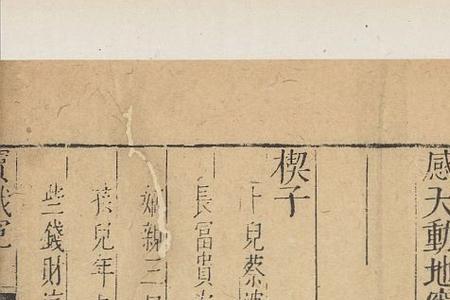 感天動地
楔子
卜兒蔡
長富貴
親三
孩兒年
些錢財
娥冤